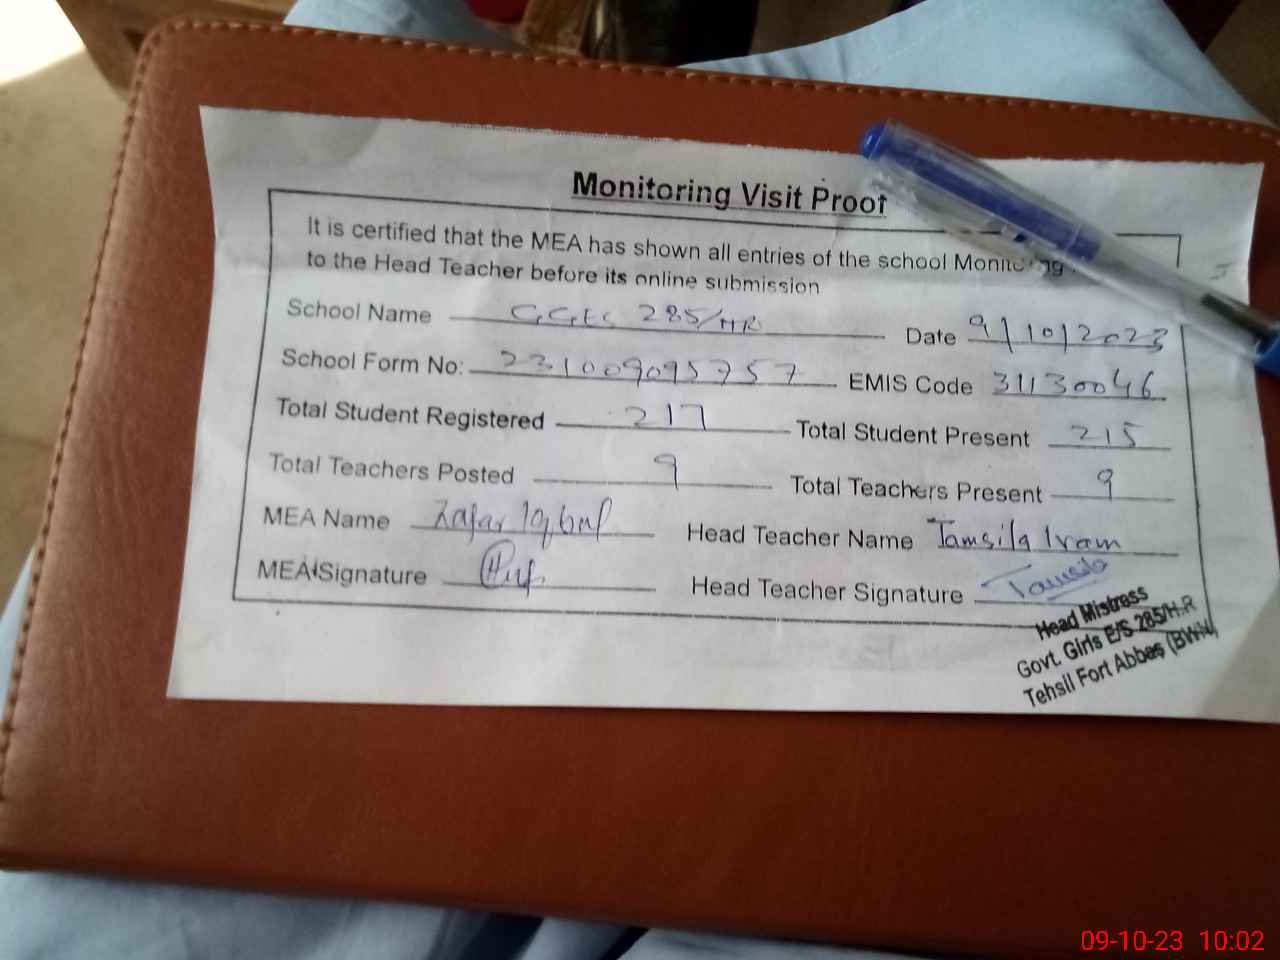 Monitoring Visit Proof
It is certified that the MEA has shown all entries of the school Monitoring
to the Head Teacher before its online submission
School Name GGES 285/HR Date 9/10/2023
School Form No: 231009095757 EMIS Code 31130046
Total Student Registered 217 Total Student Present 215
Total Teachers Posted 9 Total Teachers Present 9
MEA Name Zafar Iqbal Head Teacher Name Tamsila Iram
MEA Signature Head Teacher Signature Tamsila
Head Mistress
Govt. Girls E/S 285/H.R
Tehsil Fort Abbas (BWN)
09-10-23 10:02